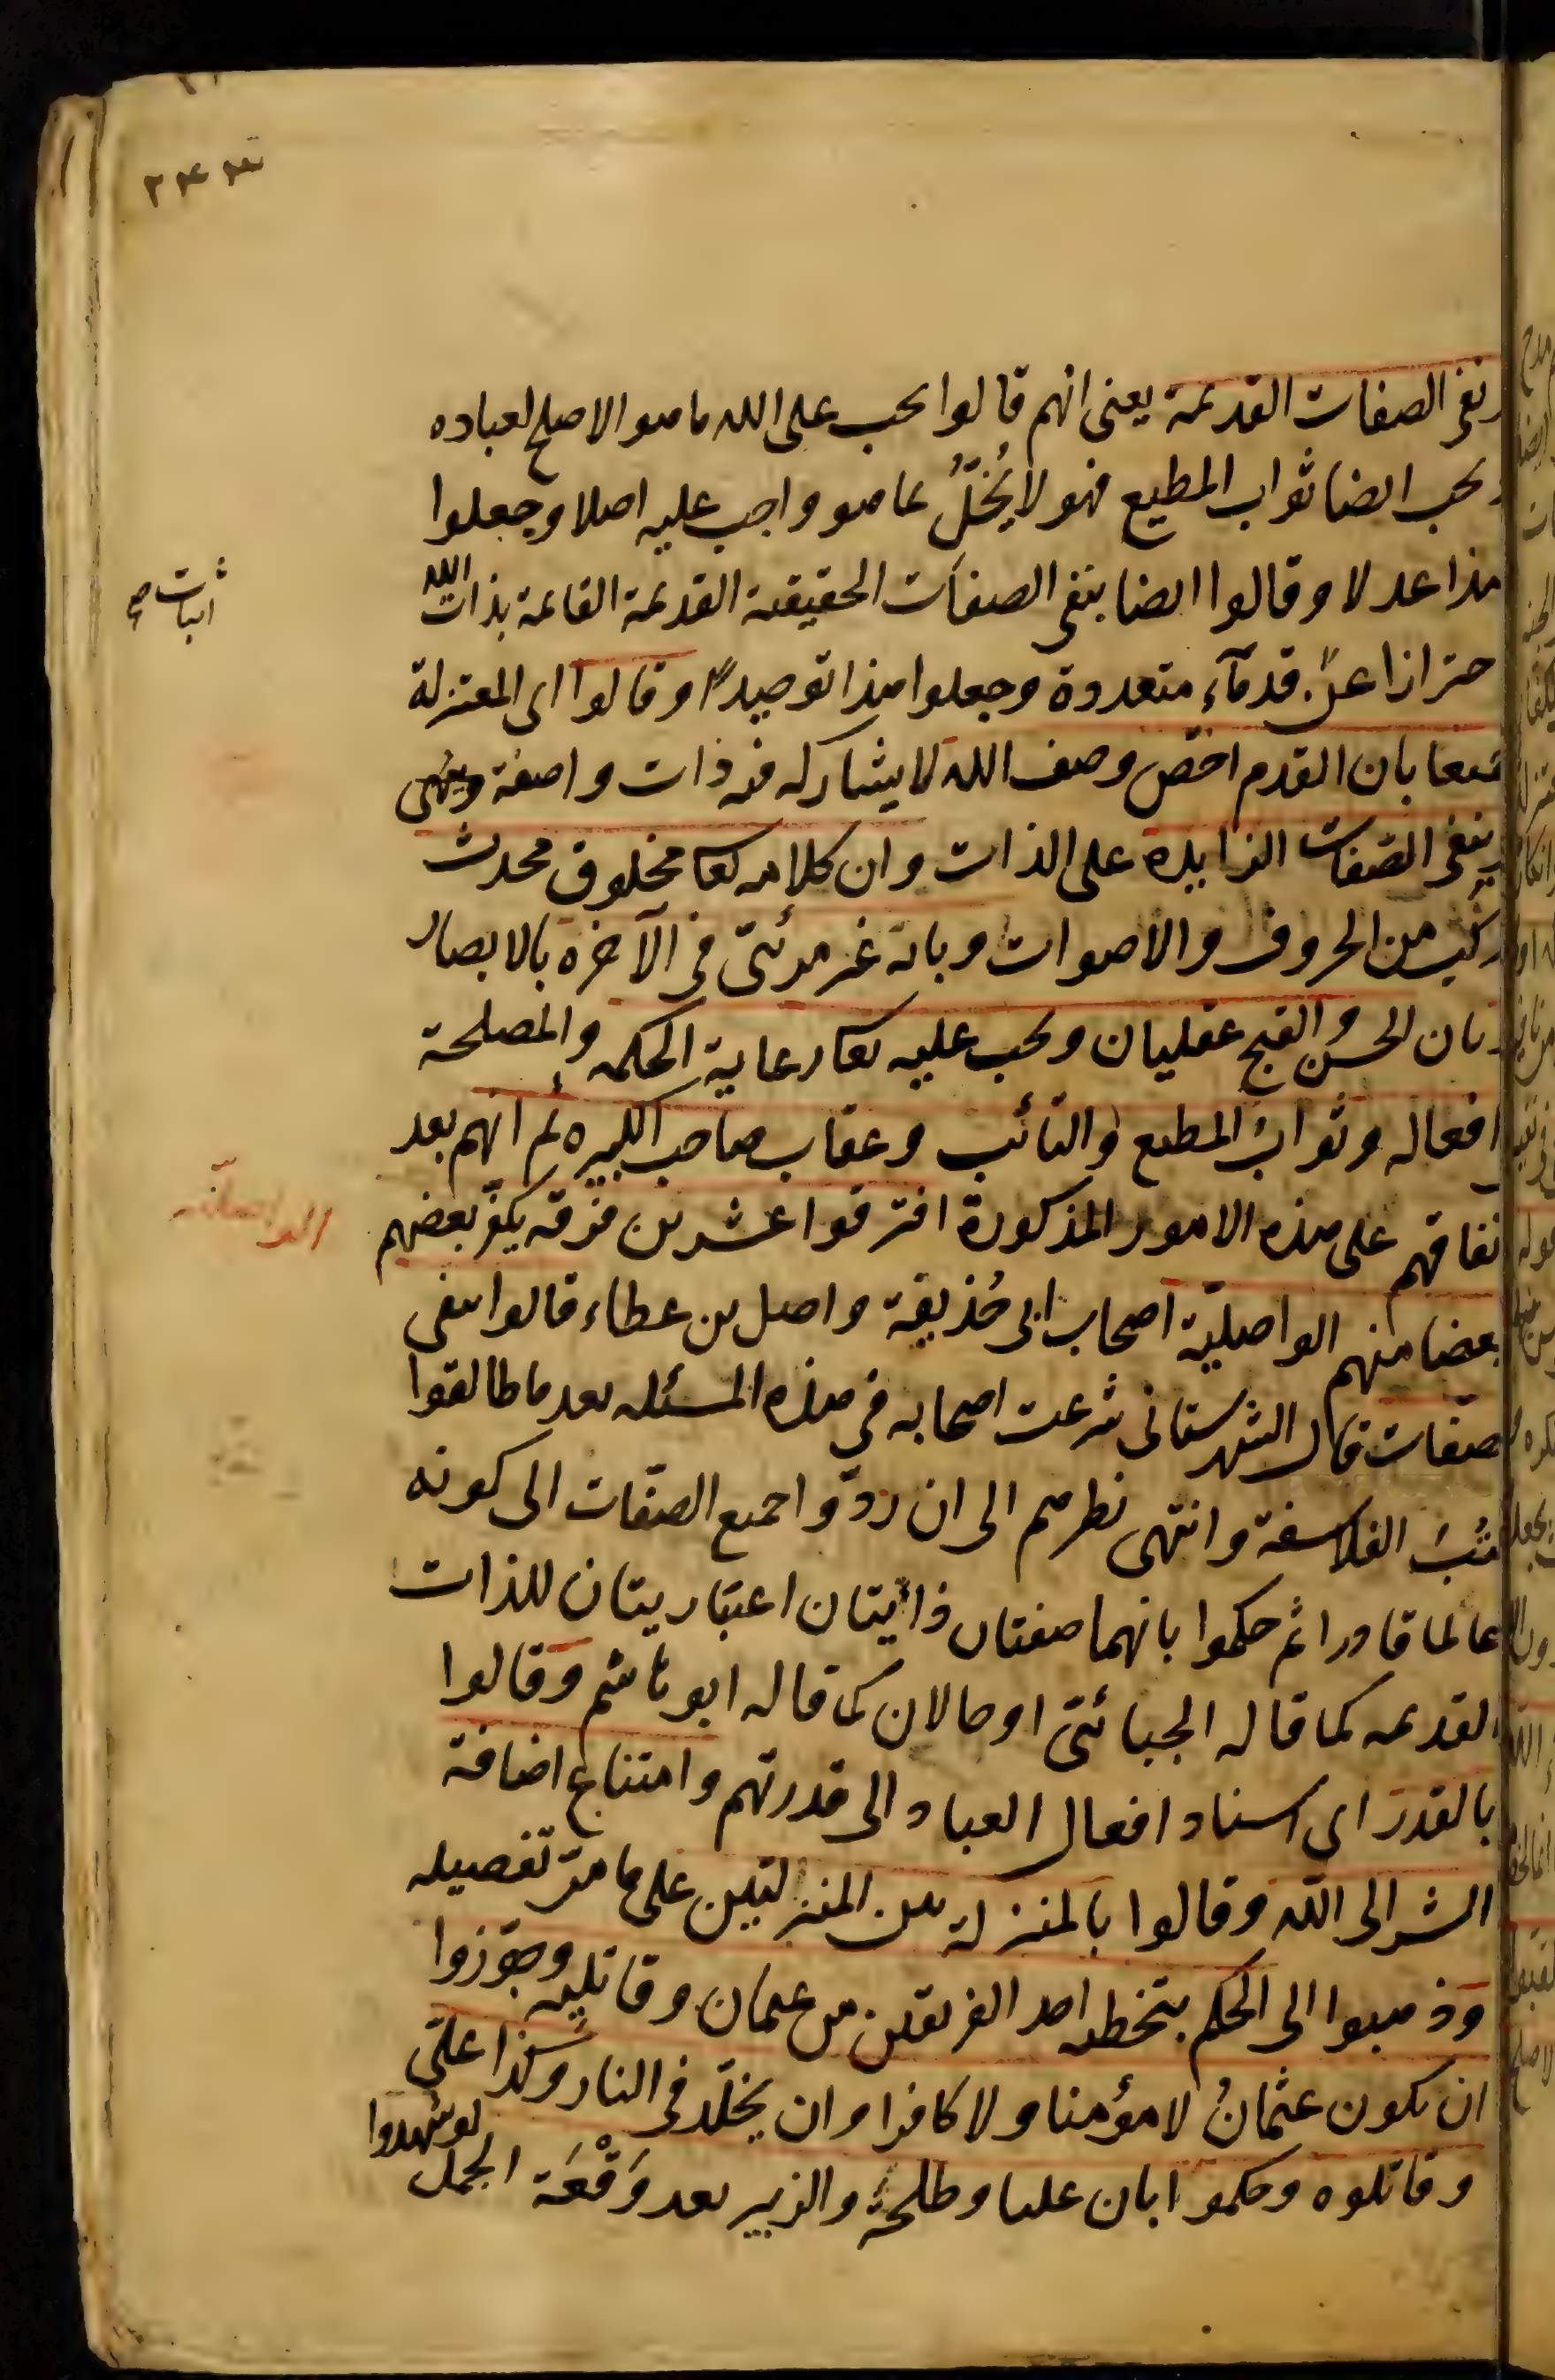 ونفى الصفات القديمة يعنى انهم قالوا يحب على الله ما هو الاصلح لعباده
ويحب ايضا ثواب المطيع فهو لا يُخلُّ بما هو واجب عليه اصلا وجعلوا
هذا عدلا وقالوا ايضا بنفى الصفات الحقيقية القديمة القائمة بذات الله
اثبات صح
حترازا عن قدمآء متعدوة وجعلوا هذا توحيدا وقالوا اى المعتزلة
جميعا بان القدم اخص وصف الله لا يشاركه فيه ذات و اصفة
بنفى الصّفات الزايدة على الذات وان كلامه تعا مخلوق محدث
مركب من الحروف والاصوات وبانه غير مرئىّ فى الآخرة بالابصار
وبان الحسن والقبح عقليان ويحب عليه تعا رعاية الحكمه والمصلحة
افعاله وثواب المطيع والتائب وعقاب صاحب الكبيره ثم انهم بعد
تفاقهم على هذه الامور المذكورة افترقوا عشرين فرقه يكفّر بعضهم
الواصليّه
بعضا منهم الواصليّة اصحاب ابى حُذيفة واصل بن عطاء قالوا بنفى
صفات قال الشهرستانى شرعت اصحابه فى هذه المسئله بعد ما طالعوا
كتب الفلاسفة وانتهى نظرهم الى ان ردّوا جميع الصّفات الى كونه
عالما قادرا ثم حكموا بانهما صفتان ذاتيتان اعتباريتان للذات
القديمه كما قاله الجبائىّ او حالان كما قاله ابو هاشم وقالوا
بالقدر اى اسناد افعال العباد الى قدرتهم وامتناع اضافة
الشر الى الله وقالوا بالمنزلة بين المنزلتين على ما مرّ تفصيله
وذهبوا الى الحكم بتخطئه احد الفريقين من عثمان وقاتليه وجوّزوا
ان يكون عثمانُ لا مؤمنا ولا كافرا وان يخلّد فى النار وكذا علىّ
وقاتلوه وحكموا بان عليا وطلحة والزبير بعد وَقْعَة الجمل لو شهدوا